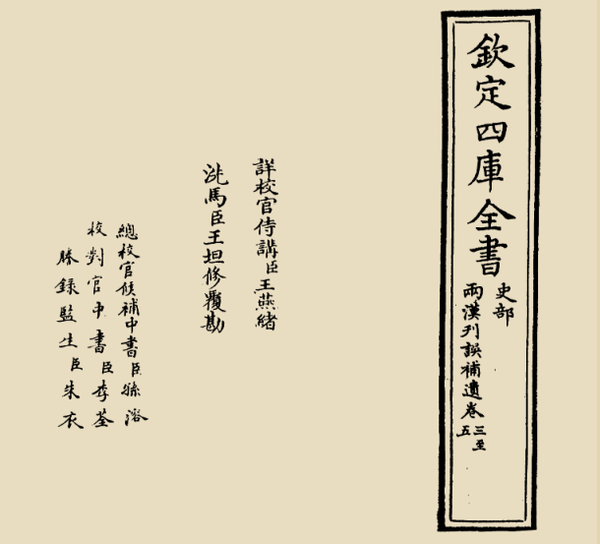 欽定四庫全書
史部
兩漢刊誤補遺卷三至五
詳校官侍講臣王燕緒
洗馬臣王坦修覆勘
總校官候補中書臣孫溶
校對官中書臣李荃
謄錄監生臣朱衣